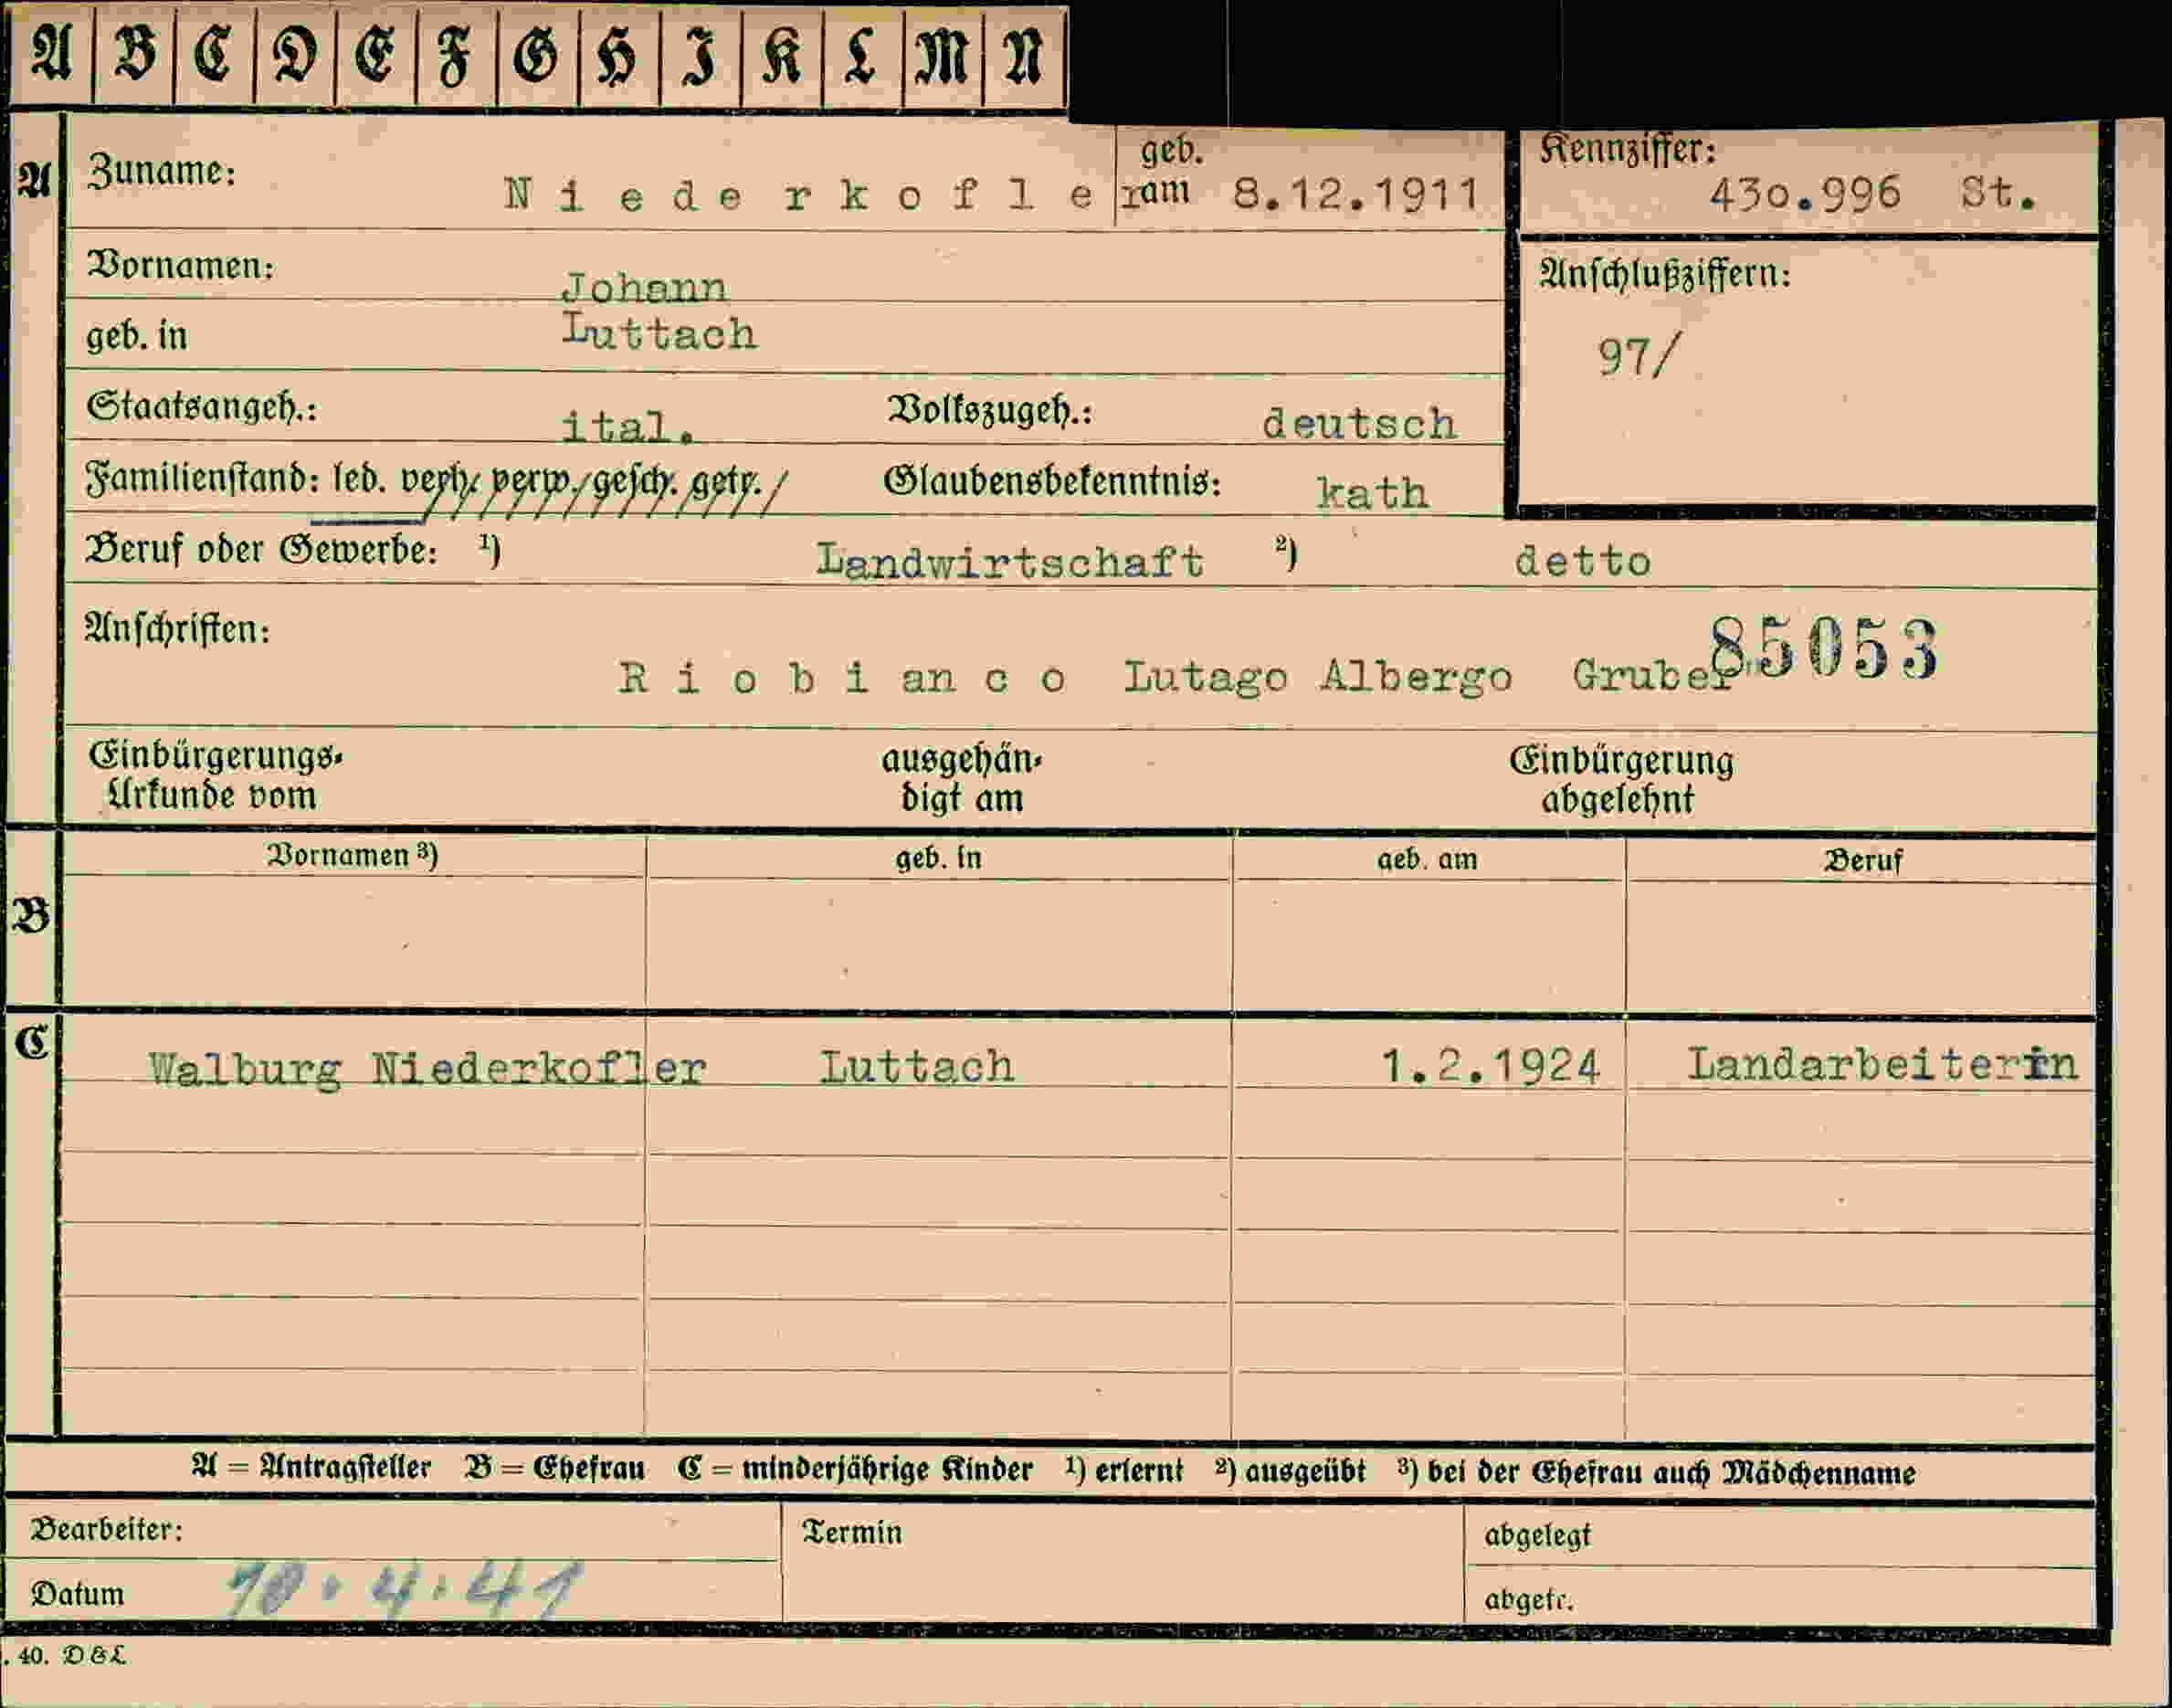 A B C D E F G H I K L M N
A Zuname: Niederkofler geb. am 8.12.1911 Kennziffer: 430.996 St.
Vornamen: Johann Anschlußziffern:
geb. in Luttach 97/
Staatsangeh.: ital. Volkszugeh.: deutsch
Familienstand: led. verh. verw. gesch. getr. Glaubensbekenntnis: kath
Beruf oder Gewerbe: ¹) Landwirtschaft ²) detto
Anschriften: 85053
Riobianco Lutago Albergo Gruber
Einbürgerungs- ausgehän- Einbürgerung
Urkunde vom digt am abgelehnt
Vornamen ³) geb. in geb. am Beruf
B
C Walburg Niederkofler Luttach 1.2.1924 Landarbeiterin
A = Antragsteller B = Ehefrau C = minderjährige Kinder ¹) erlernt ²) ausgeübt ³) bei der Ehefrau auch Mädchenname
Bearbeiter: Termin abgelegt
Datum 10.4.41 abgetr.
. 40. D & L